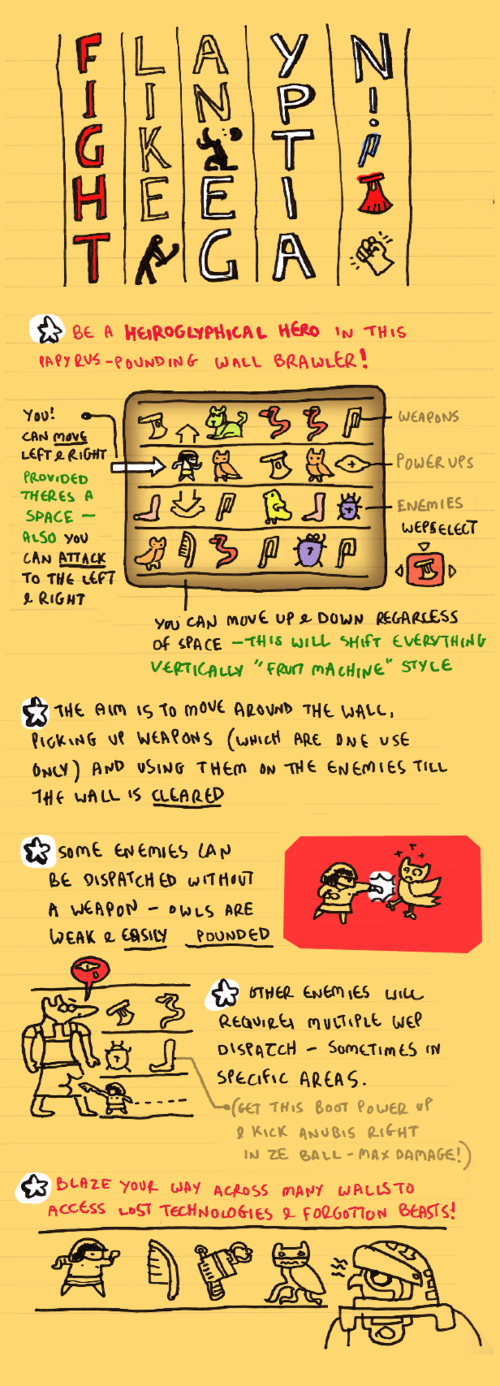 FIGHT
LIKE
AN
EG
YPTIA
N!
BE A HEIROGLYPHICAL HERO IN THIS
PAPYRUS-POUNDING WALL BRAWLER!
YOU!
CAN MOVE
LEFT & RIGHT
PROVIDED
THERES A
SPACE —
ALSO YOU
CAN ATTACK
TO THE LEFT
& RIGHT
WEAPONS
POWER UPS
ENEMIES
WEPSELECT
YOU CAN MOVE UP & DOWN REGARLESS
OF SPACE - THIS WILL SHIFT EVERYTHING
VERTICALLY "FRUIT MACHINE" STYLE
THE AIM IS TO MOVE AROUND THE WALL,
PICKING UP WEAPONS (WHICH ARE ONE USE
ONLY) AND USING THEM ON THE ENEMIES TILL
THE WALL IS CLEARED
SOME ENEMIES CAN
BE DISPATCHED WITHOUT
A WEAPON - OWLS ARE
WEAK & EASILY POUNDED
OTHER ENEMIES WILL
REQUIRE MULTIPLE WEP
DISPATCH - SOMETIMES IN
SPECIFIC AREAS.
(GET THIS BOOT POWER UP
& KICK ANUBIS RIGHT
IN ZE BALL - MAX DAMAGE!)
BLAZE YOUR WAY ACROSS MANY WALLS TO
ACCESS LOST TECHNOLOGIES & FORGOTTON BEASTS!